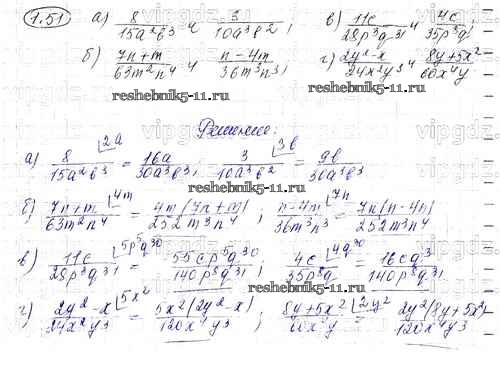 1.51) а) 8/15a²b³ и 3/10a³b²; в) 11c/28p⁸q³¹ и 4c/35p⁸q;
б) 7n+m/63m²n⁴ и n-4m/36m³n³; г) 2y²-x/24x²y³ и 8y+5x²/60x⁴y
reshebnik5-11.ru reshebnik5-11.ru
Решение:
а) 8/15a²b³ ⌊2a = 16a/30a³b³; 3/10a³b² ⌊3b = 9b/30a³b³
reshebnik5-11.ru
б) 7n+m/63m²n⁴ ⌊4m = 4m(7n+m)/252m³n⁴; n-4m/36m³n³ ⌊7n = 7n(n-4m)/252m³n⁴
в) 11c/28p³q³¹ ⌊5p⁵q³⁰ = 55cp⁵q³⁰/140p⁸q³¹; 4c/35p⁸q ⌊4q³⁰ = 16cq³/140p⁸q³¹
reshebnik5-11.ru reshebnik5-11.ru
г) 2y²-x/24x²y³ ⌊5x² = 5x²(2y²-x)/120x⁴y³; 8y+5x²/60x⁴y ⌊2y² = 2y²(8y+5x²)/120x⁴y³